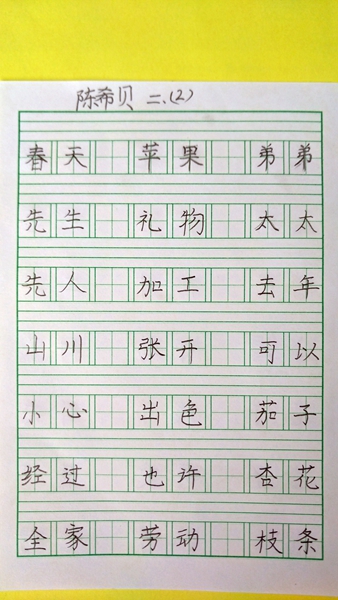 陈希贝 二、(2)
春天 苹果 弟弟
先生 礼物 太太
先人 加工 去年
山川 张开 可以
小心 出色 茄子
经过 也许 杏花
全家 劳动 枝条